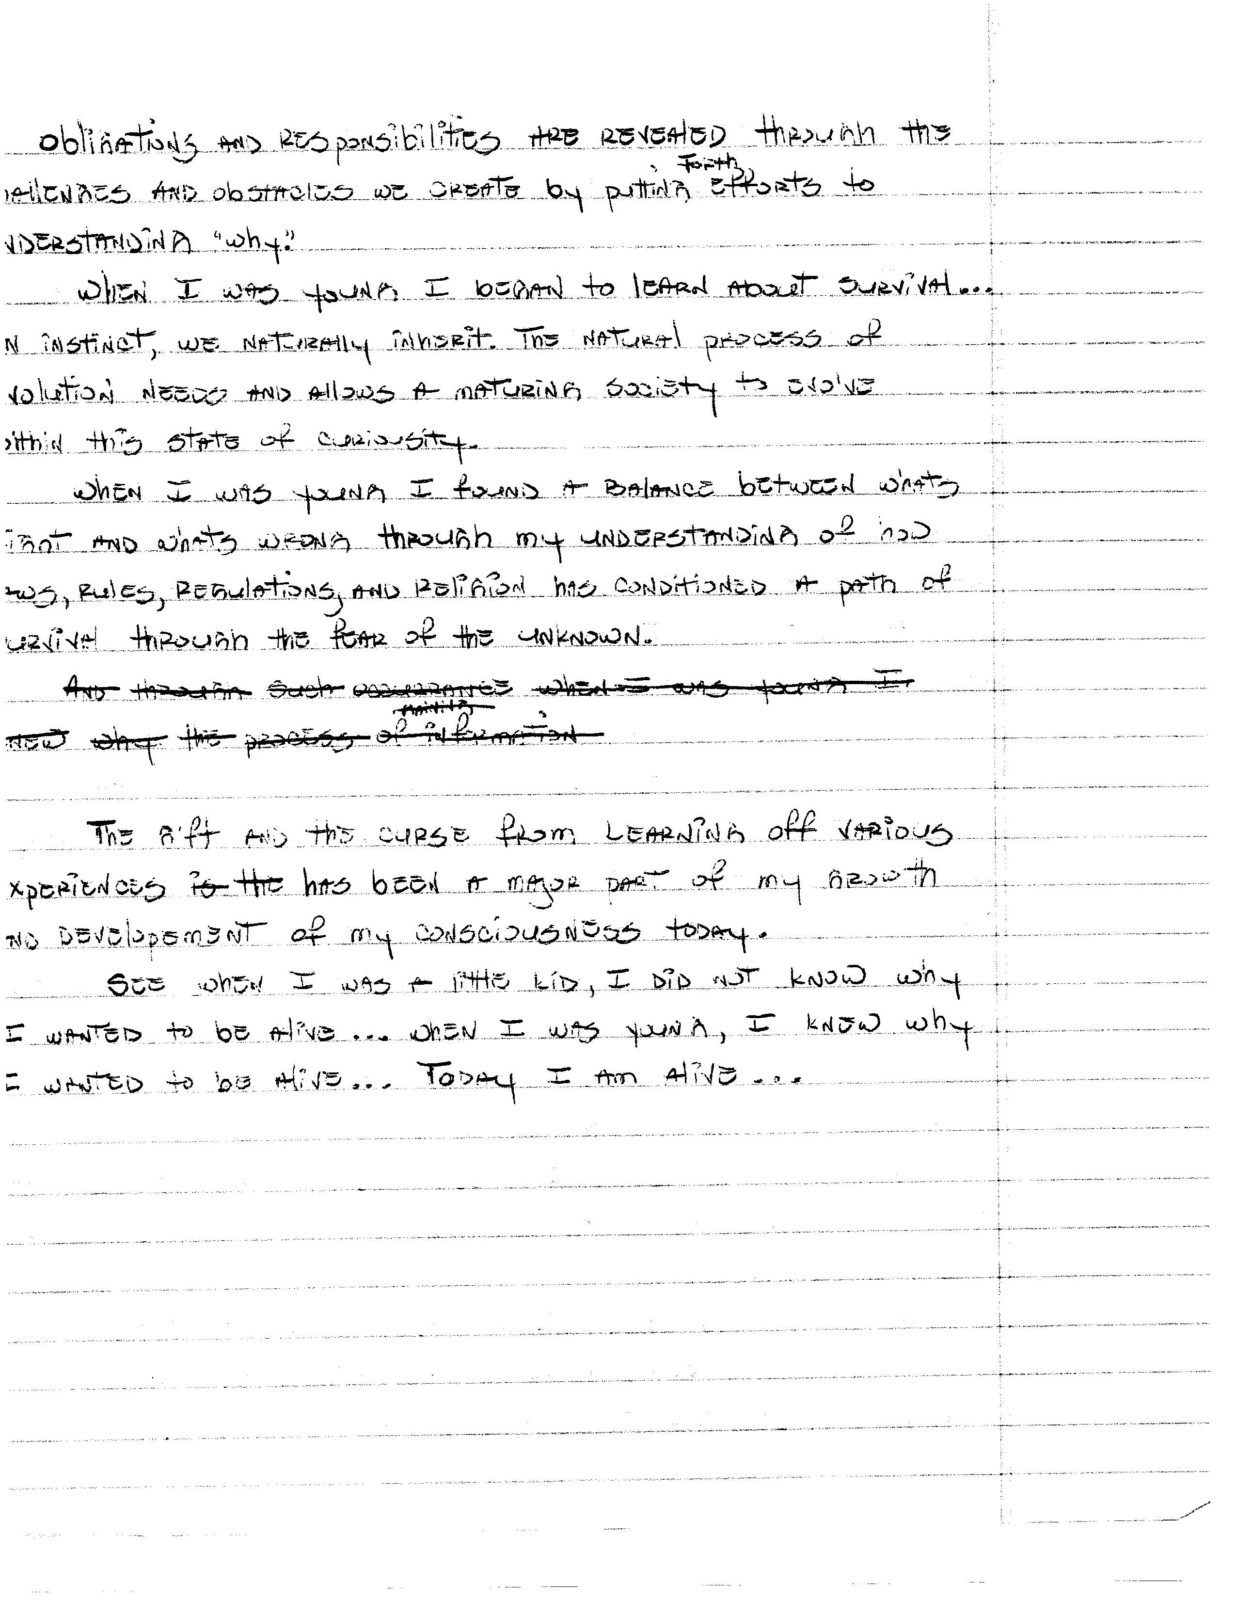 Obligations AND RESponsibilities ARE REVEALED through the
allENGES AND ObstAclES WE CREATE by putting forth Efforts to
NDERSTANDING "why."
WHEN I WAS YOUNG I BEGAN to lEARN About SURVIVAL...
N INSTINCT, WE NATURALLY INHERIT. The NATURAl process of
volution NEEDS AND AllOWS A MATURING Society to EVOLVE
ithin this STATE of CURIOUSITY.
WHEN I WAS YOUNG I found A BALANCE between whats
ight AND whats WRONG through my UNDERSTANDING of how
ws, RulES, REGulations, AND Religion has CONDITIONED A path of
urvival through the fear of the UNKNOWN.
And through such occurrance when I was young I
new why the process of gaining information
The Gift AND the CURSE from LEARNING off VARIOUS
xperiences is the has BEEN A major part of my GROWTH
ND DEVElopEMENT of my CONSCIOUSNESS today.
SEE when I WAS A little Kid, I DID NOT KNOW why
I WANTED to be Alive... WHEN I WAS YOUNG, I KNEW why
I WANTED to be Alive... TODAY I Am Alive...